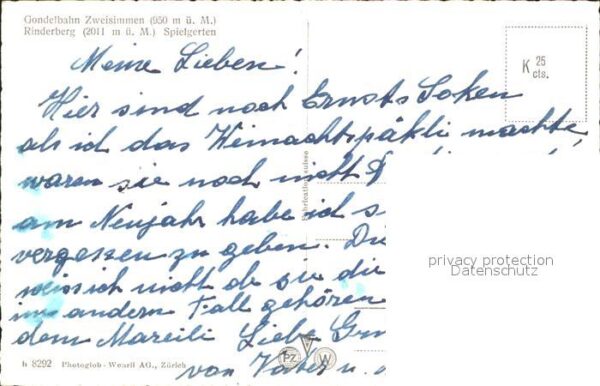 Gondelbahn Zweisimmen (950 m ü. M.)
Rinderberg (2011 m ü. M.) Spielgerten
K 25 cts.
Meine Lieben!
Hier sind noch Ernsts Soken
als ich das Weinachtspäkli machte,
waren sie noch nicht
am Neujahr habe ich s
vergessen zu geben. Du
weiss ich nicht ob sie die
im andern Fall gehören
dem Mareili Liebe
von Vater u.
Fabrication suisse
privacy protection
Datenschutz
h 8292 Photoglob-Wearli AG., Zürich
PZ W